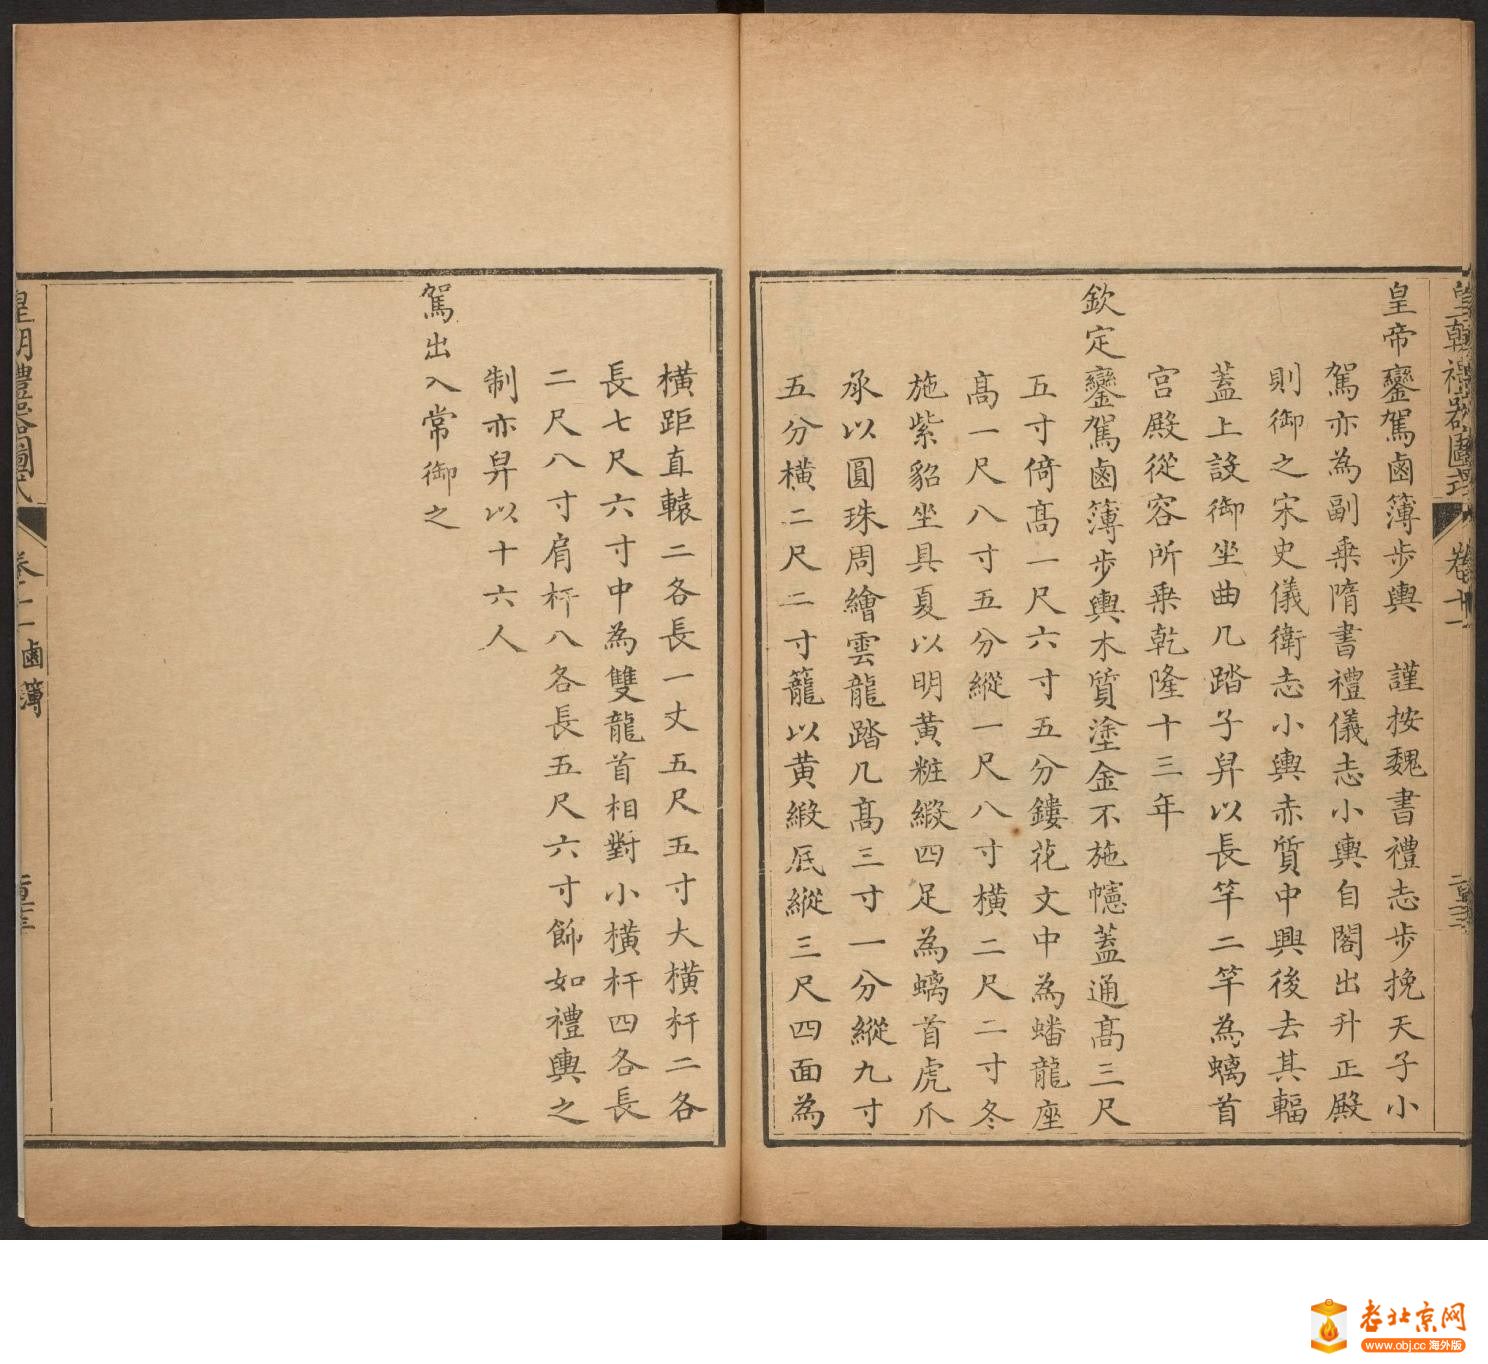 皇帝鑾駕鹵簿步輿　謹按魏書禮志步挽天子小
駕亦為副乗隋書禮儀志小輿自閤出升正殿
則御之宋史儀衛志小輿赤質中興後去其輻
蓋上設御坐曲几踏子舁以長竿二竿為螭首
宮殿從容所乗乾隆十三年
欽定鑾駕鹵簿步輿木質塗金不施幰蓋通髙三尺
五寸倚髙一尺六寸五分鏤花文中為蟠龍座
髙一尺八寸五分縱一尺八寸橫二尺二寸冬
施紫貂坐具夏以明黄粧緞四足為螭首虎爪
承以圓珠周繪雲龍踏几髙三寸一分縱九寸
五分橫二尺二寸籠以黄緞底縱三尺四面為
橫距直轅二各長一丈五尺五寸大橫杆二各
長七尺六寸中為雙龍首相對小橫杆四各長
二尺八寸肩杆八各長五尺六寸飾如禮輿之
制亦舁以十六人
駕出入常御之
皇朝禮器圖式
鹵簿
老北京网
www.obj.cc 海外版